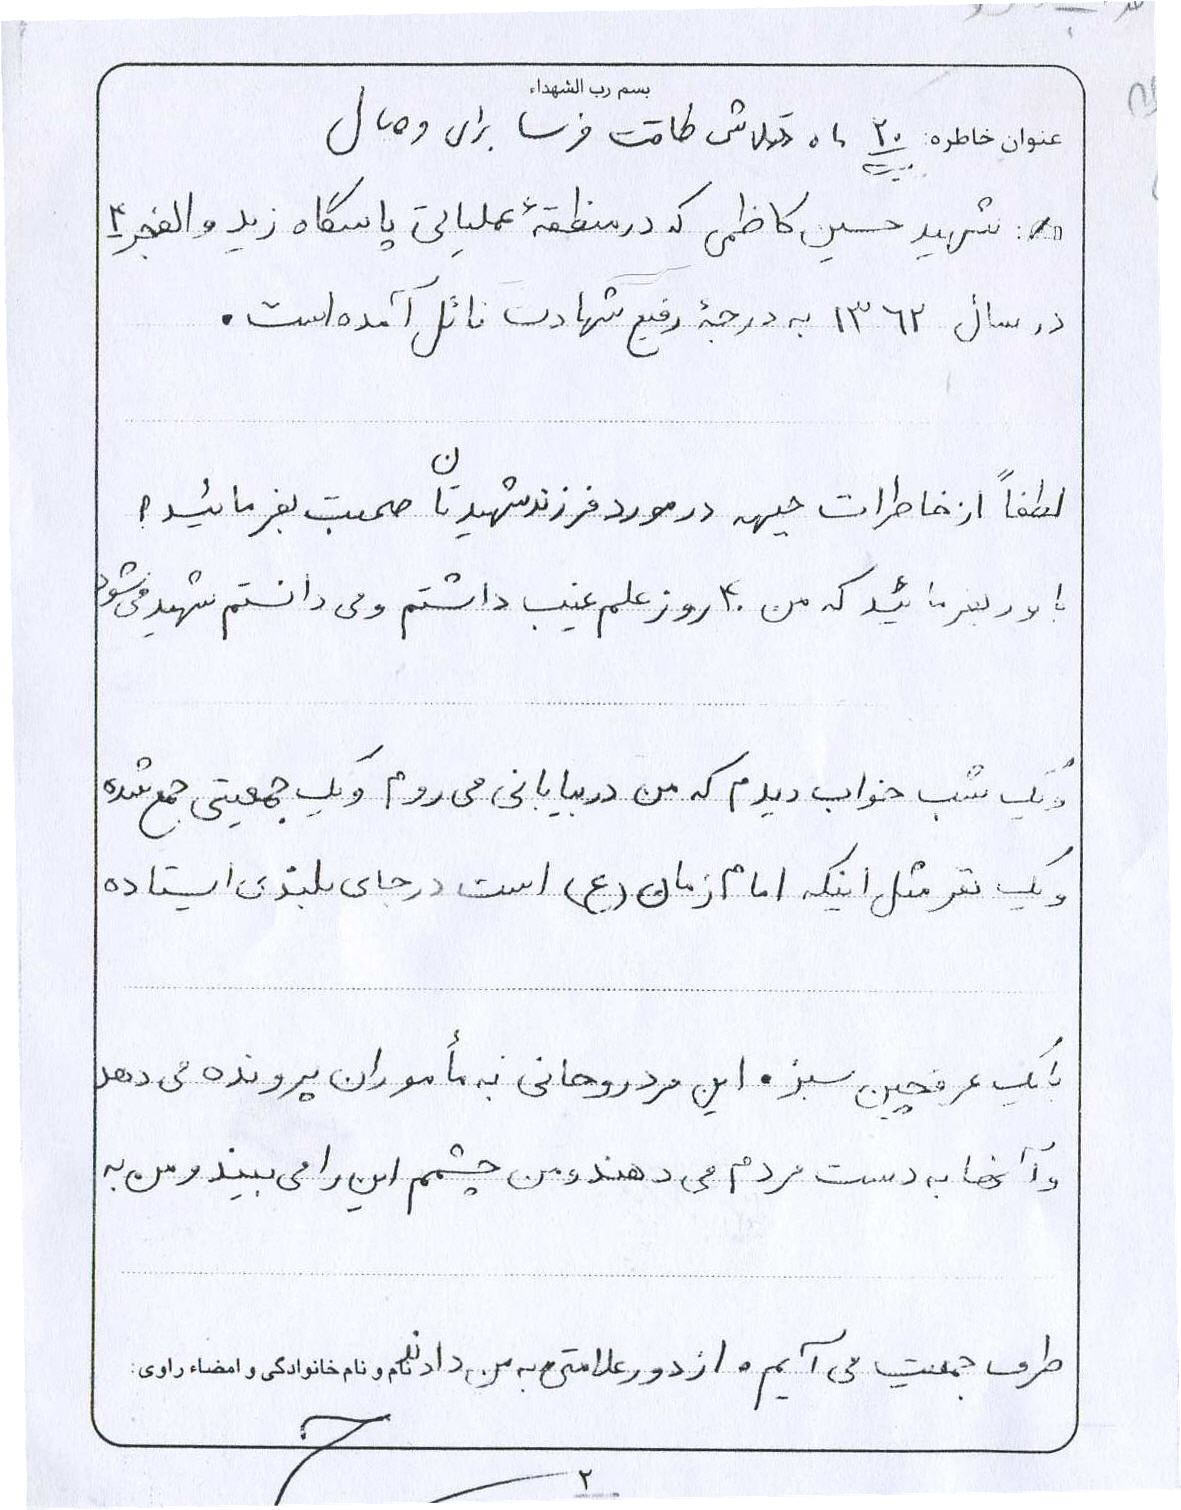 بسم رب الشهداء
عنوان خاطره: ۲۰ ماه تلاش طاقت فرسا برای وصال
شهید حسین کاظمی که در منطقهٔ عملیاتی پاسگاه زید والفجر ۴
در سال ۱۳۶۲ به درجهٔ رفیع شهادت نائل آمده است.
لطفاً از خاطرات جبهه در مورد فرزند شهیدتان صحبت بفرمائید؟
باور بفرمائید که من ۴۰ روز علم غیب داشتم و می دانستم شهید می شود
و یک شب خواب دیدم که من در بیابانی می روم و یک جمعیتی جمع شده
و یک نفر مثل اینکه امام زمان (ع) است در جای بلندی ایستاده
با یک عرقچین سبز. این مرد روحانی به مأموران پرونده می دهد
و آنها به دست مردم می دهند و من چشمم این را می بیند و من به
طرف جمعیت می آیم. از دور علامتی به من دادند
نام و نام خانوادگی و امضاء راوی:
۲